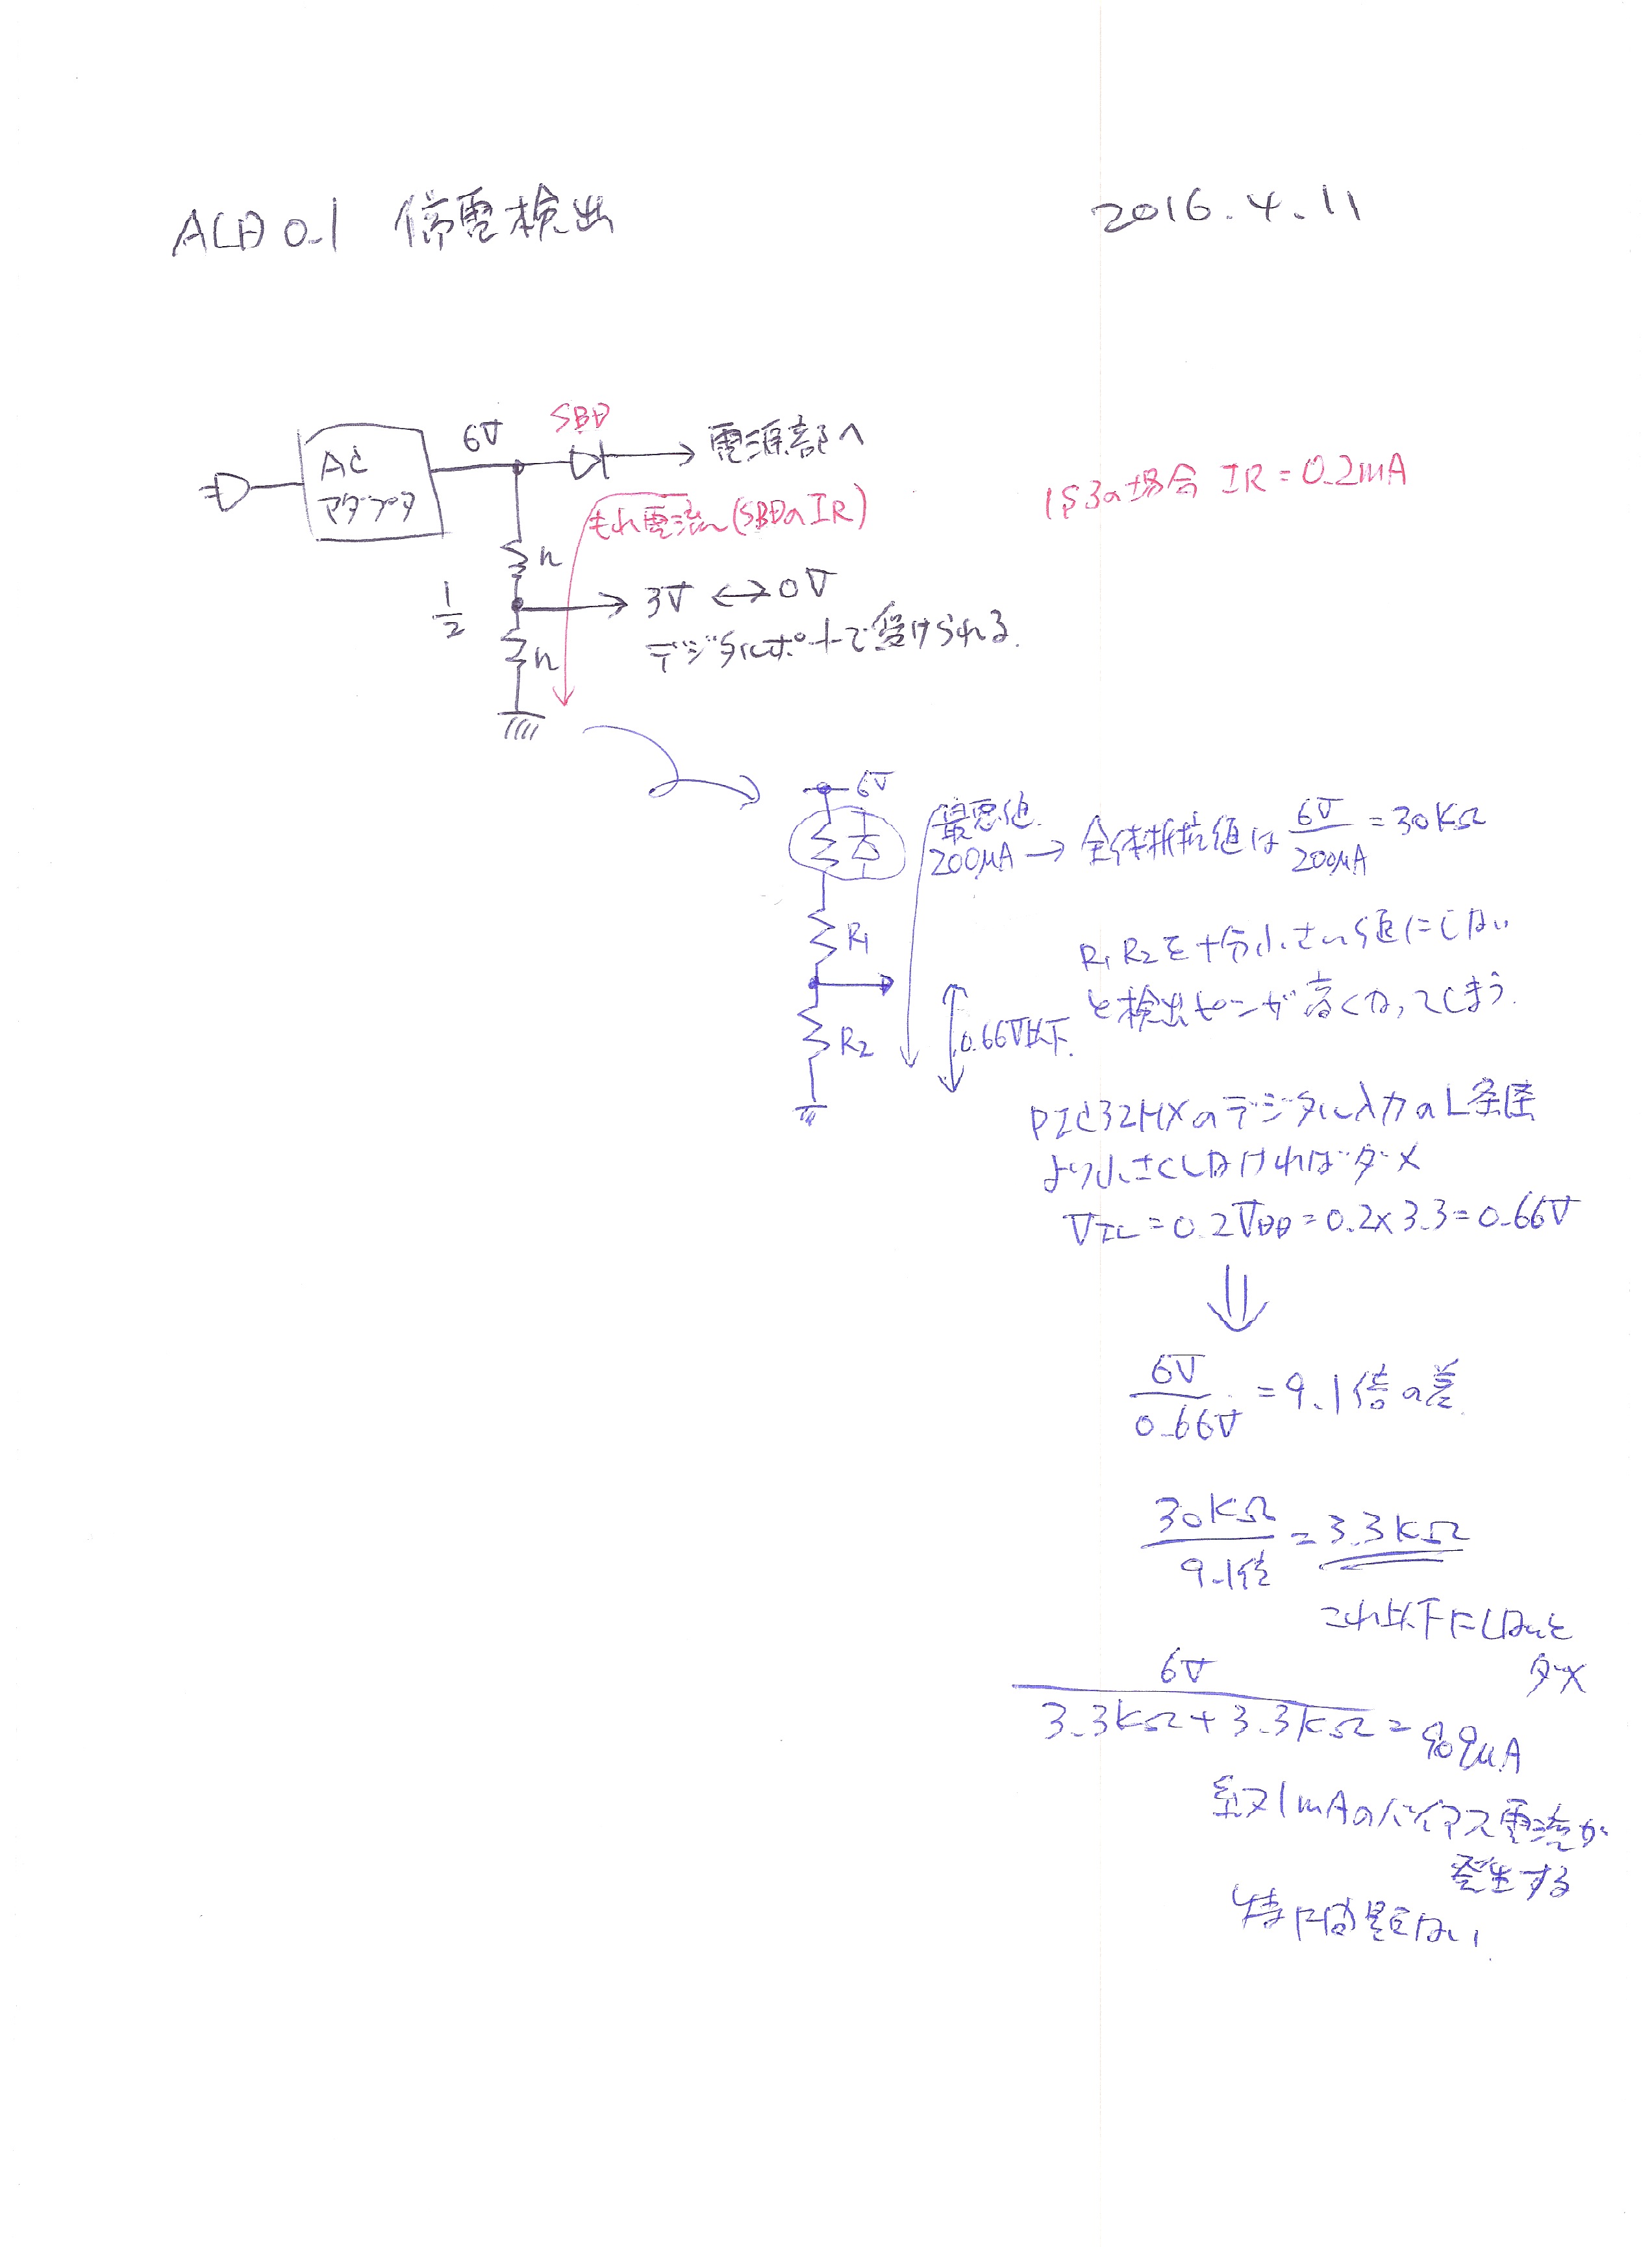 ALD 0.1 停電検出
2016.4.11
6V
SBD
電源部へ
AC
アダプタ
もれ電流(SBDのIR)
1S3の場合 IR=0.2mA
n
1/2
3V ↔ 0V
n
デジタルポートで受けられる.
6V
最悪値
200μA → 全体抵抗値は 6V/200μA = 30KΩ
R1
R2
0.66V以下.
R1 R2を十分小さい値にしない
と検出ピンが高くなってしまう.
PIC32MXのデジタル入力のL条件
より小さくしなければダメ
VIL=0.2VDD=0.2×3.3=0.66V
⇓
6V/0.66V = 9.1倍の差
30KΩ/9.1倍 = 3.3KΩ
これ以下にしないと
ダメ
6V/(3.3KΩ+3.3KΩ) = 909μA
約1mAのバイアス電流が
発生する
特に問題ない